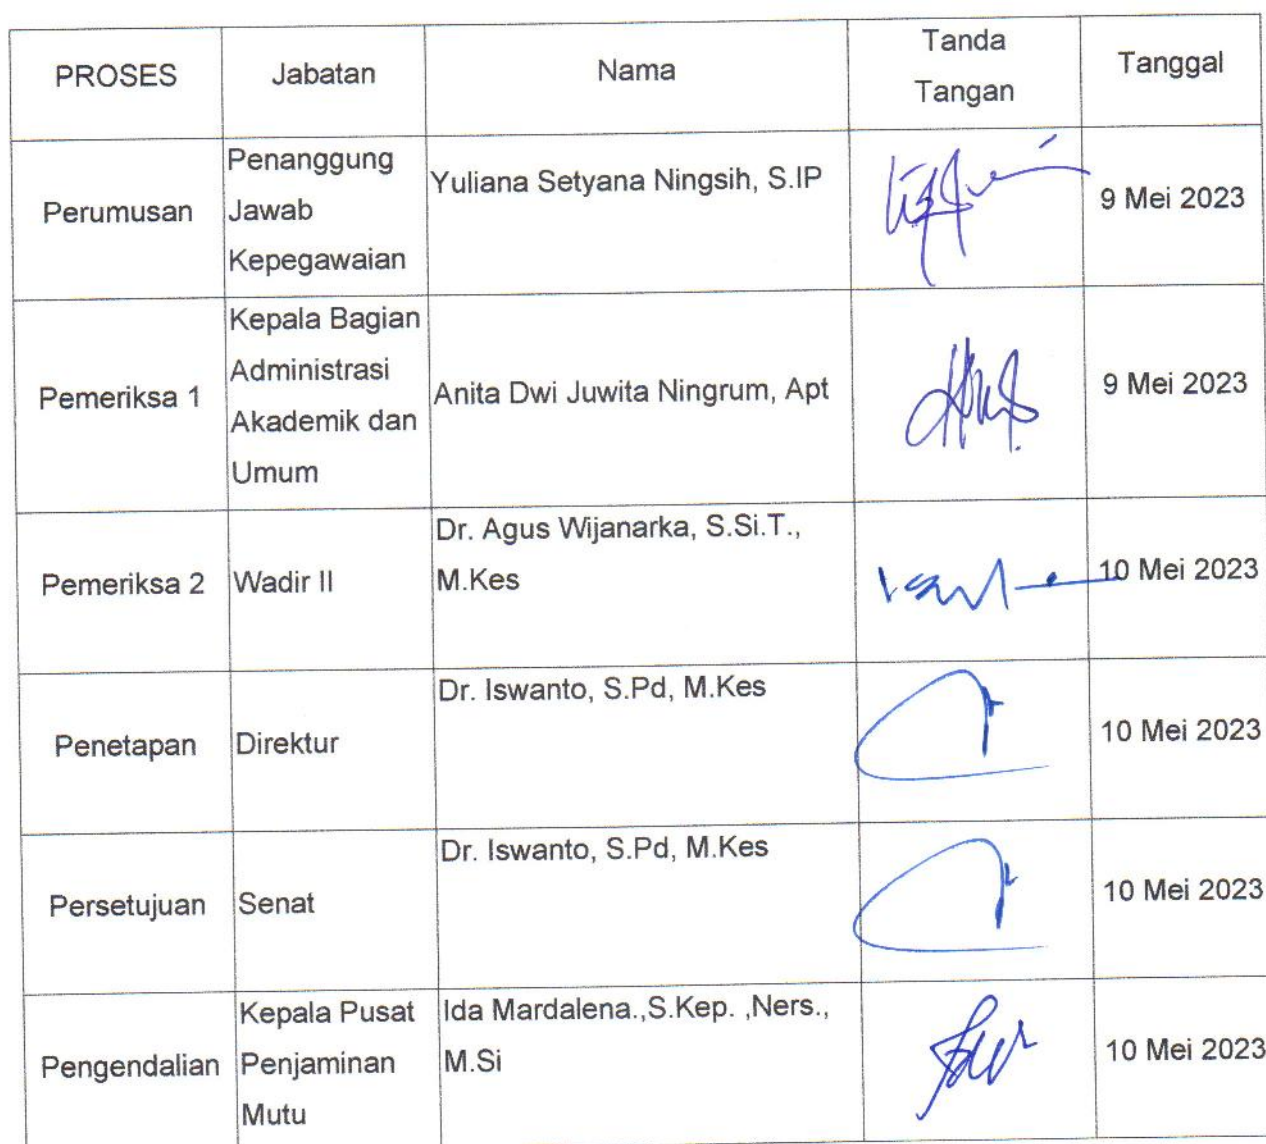 PROSES Jabatan Nama Tanda Tangan Tanggal
Perumusan
Penanggung
Jawab
Kepegawaian
Yuliana Setyana Ningsih, S.IP
9 Mei 2023
Pemeriksa 1
Kepala Bagian
Administrasi
Akademik dan
Umum
Anita Dwi Juwita Ningrum, Apt
9 Mei 2023
Pemeriksa 2
Wadir II
Dr. Agus Wijanarka, S.Si.T.,
M.Kes
10 Mei 2023
Penetapan
Direktur
Dr. Iswanto, S.Pd, M.Kes
10 Mei 2023
Persetujuan
Senat
Dr. Iswanto, S.Pd, M.Kes
10 Mei 2023
Pengendalian
Kepala Pusat
Penjaminan
Mutu
Ida Mardalena.,S.Kep. ,Ners.,
M.Si
10 Mei 2023